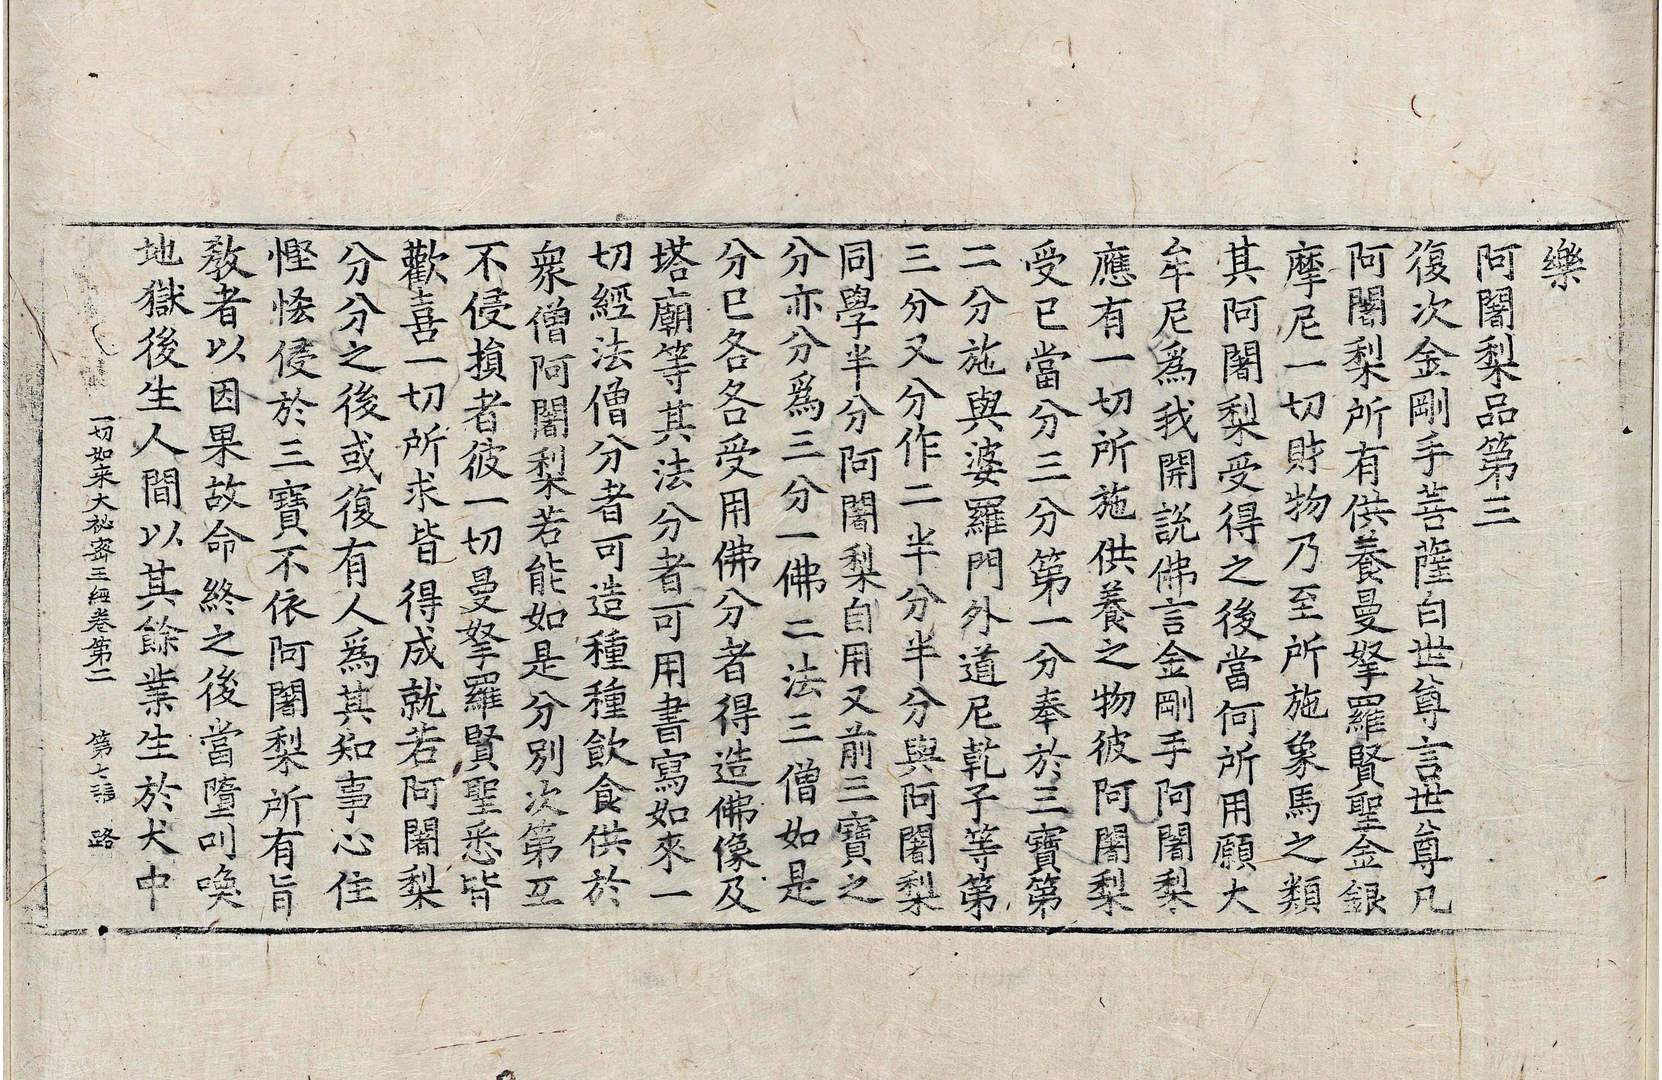 樂
阿闍梨品第三
復次金剛手菩薩白世尊言世尊凡
阿闍梨所有供養曼拏羅賢聖金銀
摩尼一切財物乃至所施象馬之類
其阿闍梨受得之後當何所用願大
牟尼爲我開説佛言金剛手阿闍梨
應有一切所施供養之物彼阿闍梨
受已當分三分第一分奉於三寶第
二分施與婆羅門外道尼乾子等第
三分又分作二半分半分與阿闍梨
同學半分阿闍梨自用又前三寶之
分亦分爲三分一佛二法三僧如是
分已各各受用佛分者得造佛像及
塔廟等其法分者可用書寫如來一
切經法僧分者可造種種飲食供於
衆僧阿闍梨若能如是分別次第互
不侵損者彼一切曼拏羅賢聖悉皆
歡喜一切所求皆得成就若阿闍梨
分分之後或復有人爲其知事心住
慳悋侵於三寶不依阿闍梨所有旨
教者以因果故命終之後當墮叫喚
地獄後生人間以其餘業生於犬中
一切如来大祕密三經卷第二 第七張 路